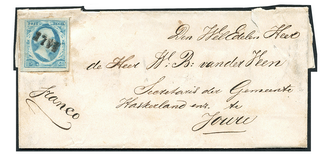 Den Wel Edelen Heer
de Heer W: B: van der Veen
Secretaris der Gemeente
Franco
Haskerland enz. te
Joure